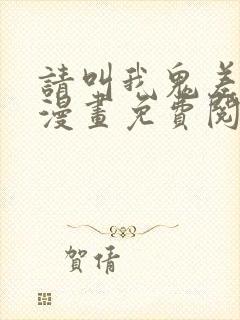 請叫我鬼差
漫畫免費閱
賀倩